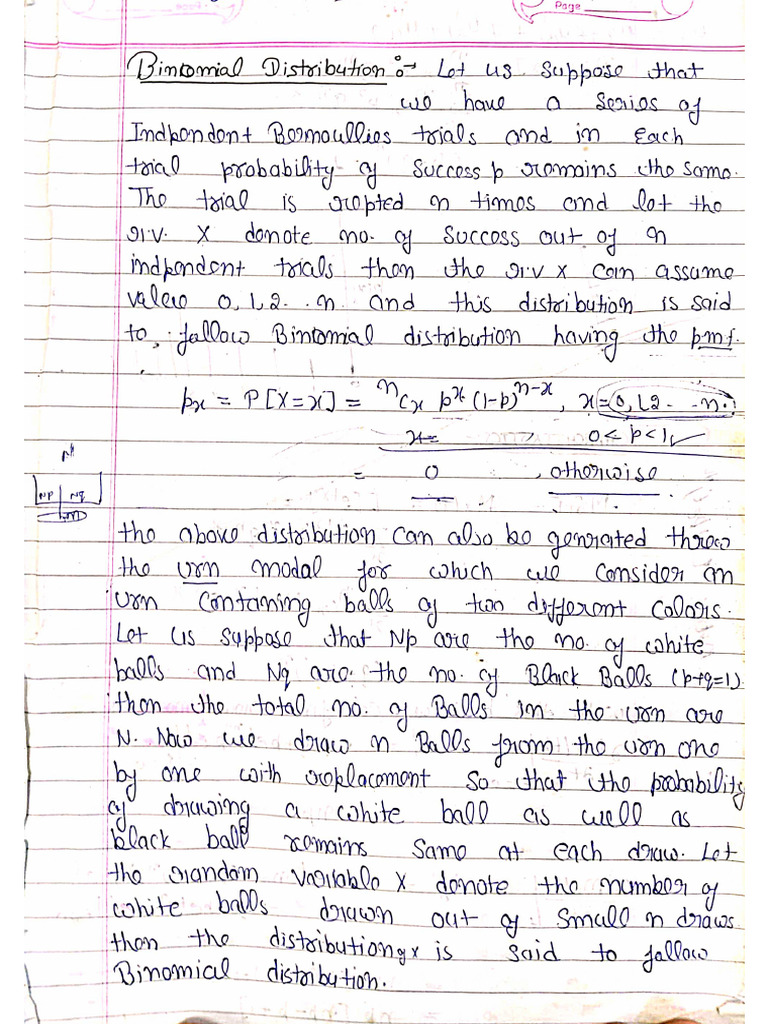 Page
Binomial Distribution :→ Let us suppose that
we have a series of
Indpendent Bernoullies trials and in each
trial probability of success p remains the same.
The trial is repted n times and let the
r.v. X denote no. of success out of n
indpendent trials then the r.v X can assume
valew 0, 1, 2 .. n. and this distribution is said
to, fallow Binomial distribution having the p.m.f.
px = P[X=x] = ⁿCx pˣ (1-p)ⁿ⁻ˣ, x=0,1,2- --n.
x= , 0<p<1,
= 0 , otherwise
N
Np | Nq
the above distribution can also be generated threw
the urn modal for which we consider an
urn contaning balls of two different colors.
Let us suppose that Np are the no. of white
balls and Nq are the no. of Black Balls (p+q=1)
then the total no. of Balls in the urn are
N. Now we draw n Balls from the urn one
by one with replacement so that the probability
of drawing a white ball as well as
black ball remains same at each draw. Let
the random variable X denote the number of
white balls drawn out of small n draws
then the distribution of X is said to fallow
Binomial distribution.